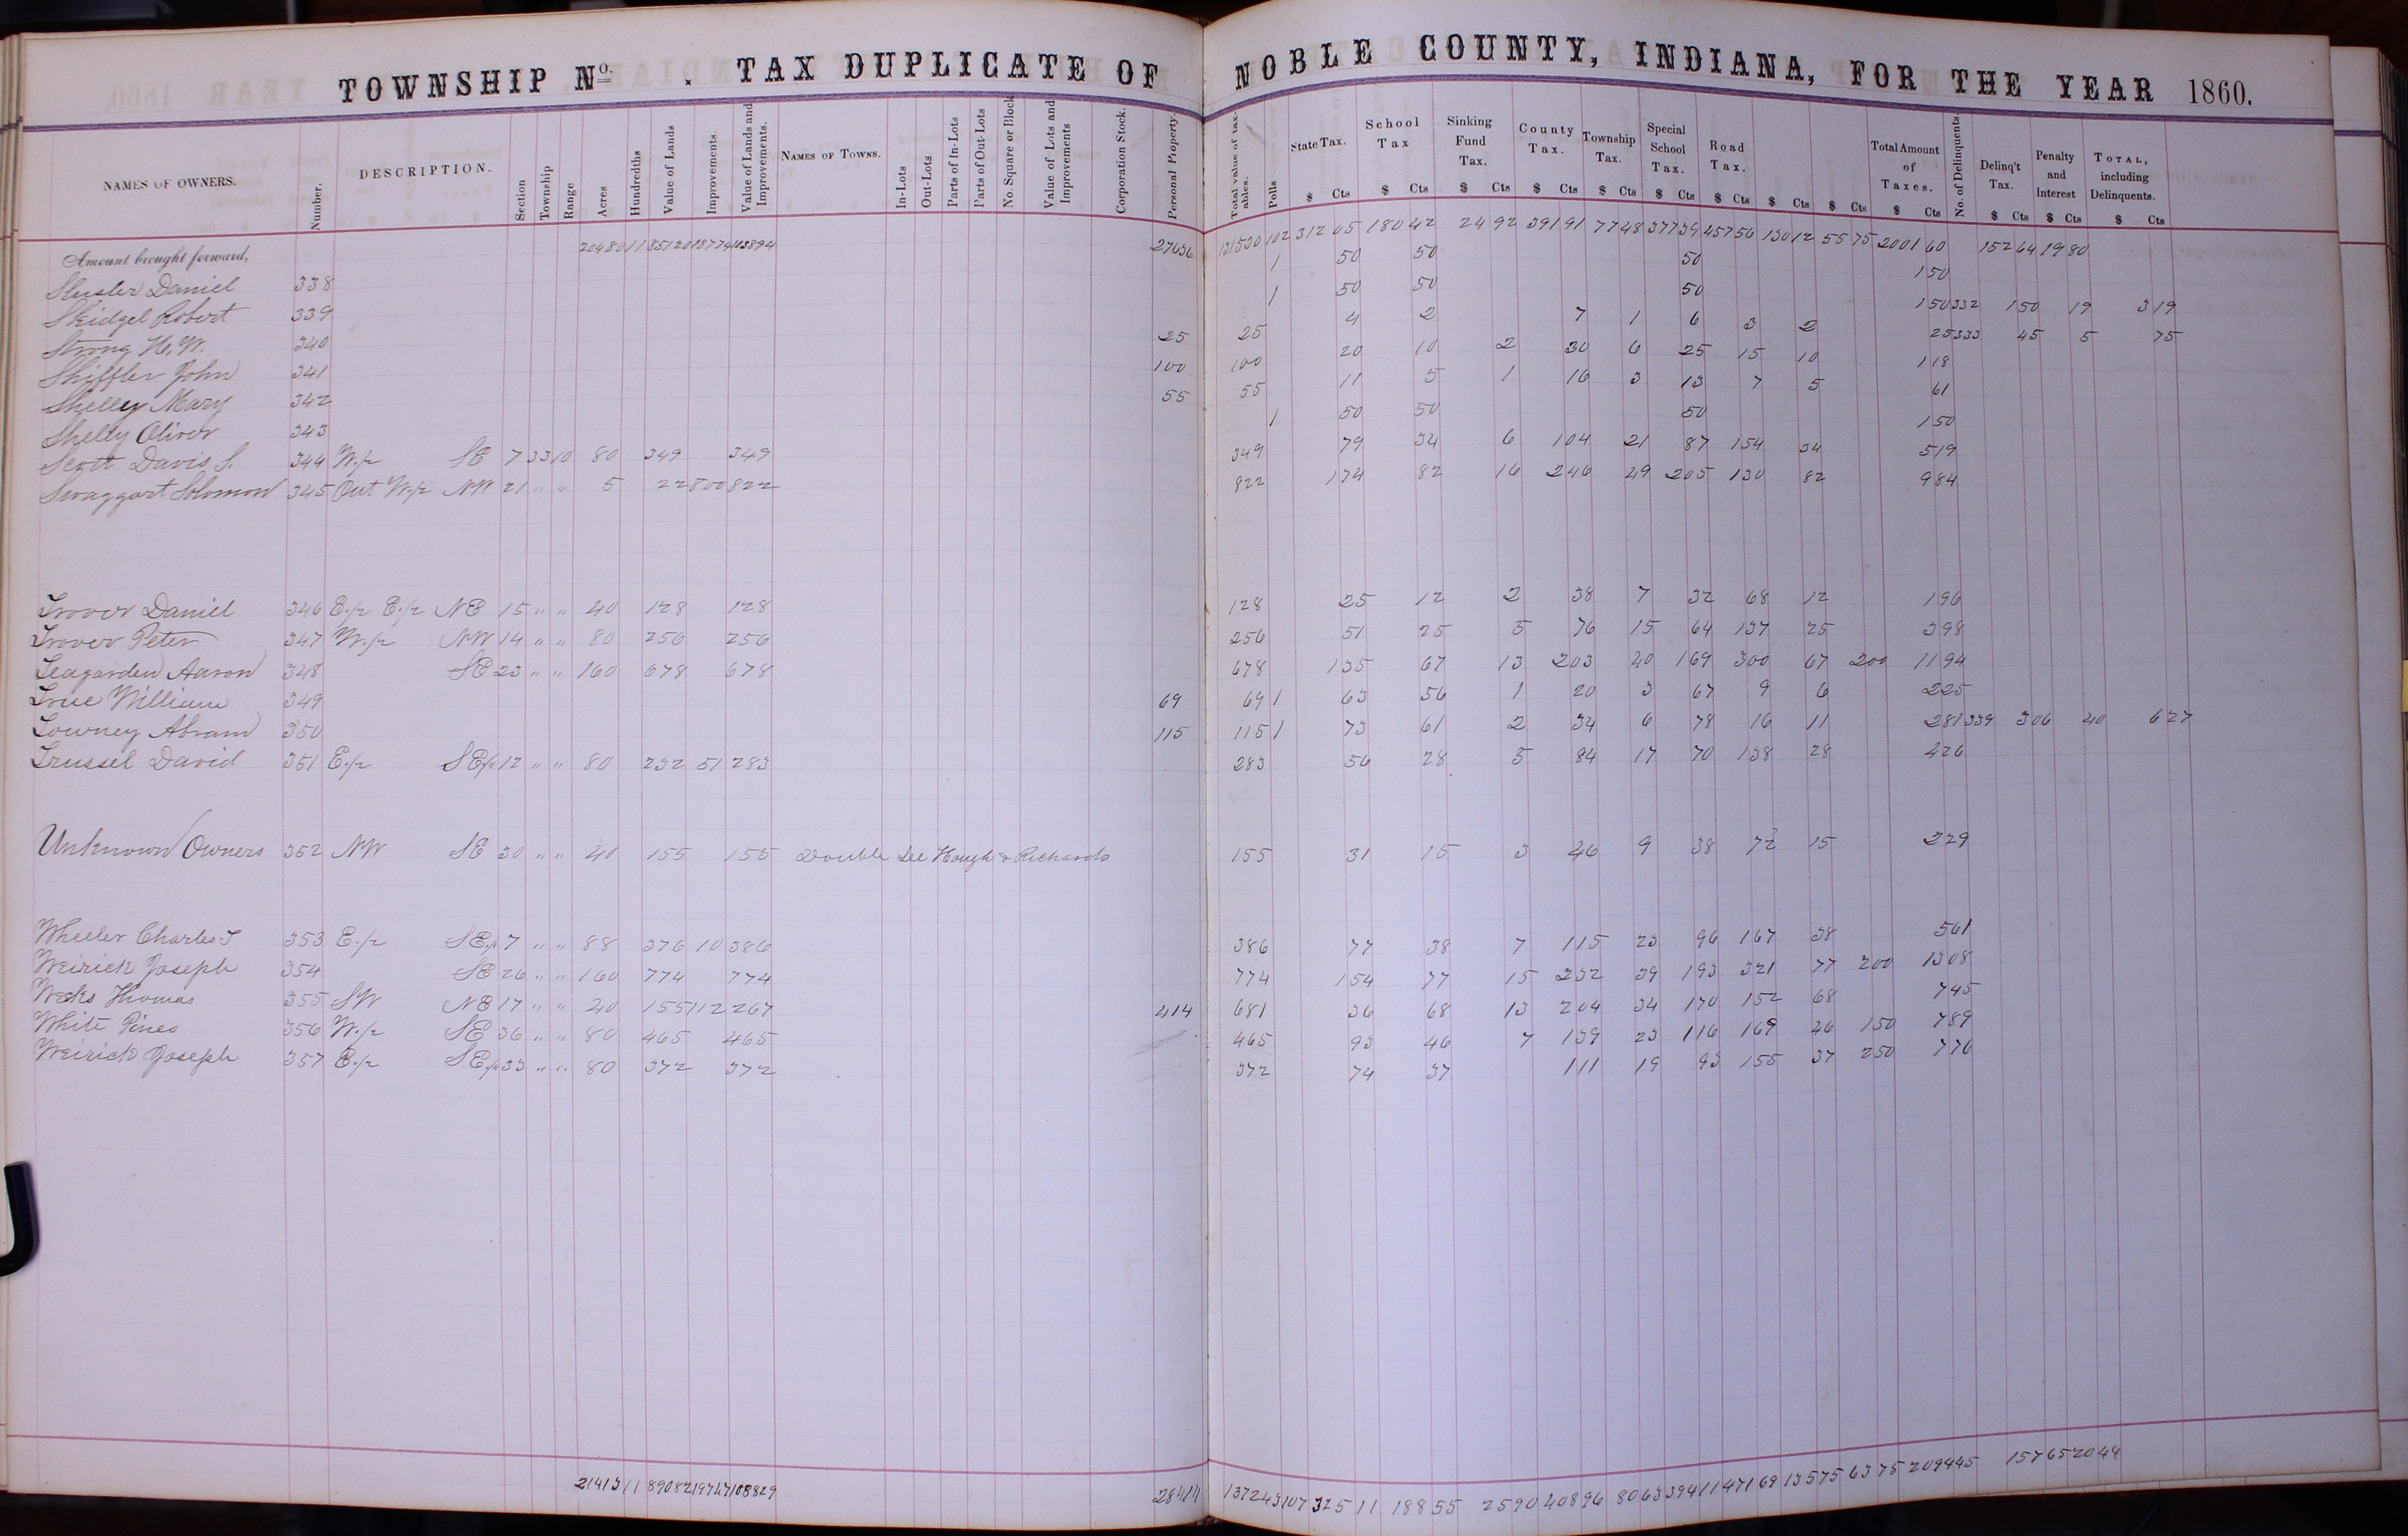 TOWNSHIP No. . TAX DUPLICATE OF NOBLE COUNTY, INDIANA, FOR THE YEAR 1860.
NAMES OF OWNERS. Number. DESCRIPTION. Section Township Range Acres Hundredths Value of Lands Improvements. Value of Lands and Improvements. NAMES OF TOWNS. In-Lots Out-Lots Parts of In-Lots Parts of Out-Lots No. Square or Block Value of Lots and Improvements Corporation Stock. Personal Property. Total value of taxables. Polls State Tax. School Tax Sinking Fund Tax. County Tax. Township Tax. Special School Tax. Road Tax. Total Amount of Taxes. No. of Delinquents. Delinq't Tax. Penalty and Interest TOTAL, including Delinquents.
$ Cts $ Cts $ Cts $ Cts $ Cts $ Cts $ Cts $ Cts $ Cts $ Cts $ Cts $ Cts $ Cts
Amount brought forward, 20480 11 27636 131530 102 312 05 180 42 24 92 391 91 77 48 377 39 457 56 130 12 55 75 2001 60 152 64 19 80
Slusler Daniel 338 1 50 50 50 150
Skidgel Robert 339 1 50 50 50 150 332 150 19 319
Strong H. W. 340 25 25 4 2 7 1 6 3 2 25 333 45 5 75
Shiffler John 341 100 100 20 10 2 30 6 25 15 10 118
Shelley Mary 342 55 55 11 5 1 16 3 13 7 5 61
Shelly Oliver 343 1 50 50 50 150
Scott Davis S. 344 W.pt SE 7 33 10 80 349 349 349 79 34 6 104 21 87 154 34 519
Swaggart Solomon 345 Out W.pt NW 21 " " 5 22 800 822 822 174 82 16 246 49 205 130 82 984
Trover Daniel 346 E.pt E.pt NE 15 " " 40 128 128 128 25 12 2 38 7 32 68 12 196
Trover Peter 347 W.pt NW 14 " " 80 256 256 256 51 25 5 76 15 64 137 25 398
Teagarden Aaron 348 SE 23 " " 160 678 678 678 135 67 13 203 40 169 300 67 200 1194
True William 349 69 69 1 63 56 1 20 3 67 9 6 225
Towney Abram 350 115 115 1 73 61 2 34 6 78 16 11 281 339 306 40 627
Trussel David 351 E.pt SE.pt 12 " " 80 232 51 283 283 56 28 5 84 17 70 138 28 426
Unknown Owners 352 NW SE 30 " " 40 155 155 Double See Hough & Richards 155 31 15 3 46 9 38 72 15 229
Wheeler Charles T 353 E.pt SE.pt 7 " " 88 376 10 386 386 77 38 7 115 23 96 167 38 561
Weirick Joseph 354 SE 26 " " 160 774 774 774 154 77 15 232 39 193 321 77 200 1308
Weeks Thomas 355 SW NE 17 " " 40 155 112 267 414 681 36 68 13 204 34 170 152 68 745
White Pines 356 W.pt SE 36 " " 80 465 465 465 93 46 7 139 23 116 169 46 150 789
Weirick Joseph 357 E.pt SE.pt 33 " " 80 372 372 372 74 37 111 19 93 155 37 250 776
21413 11 28414 137243 107 325 11 188 55 25 90 408 96 80 63 394 11 471 69 135 75 63 75 2094 45 157 65 20 44